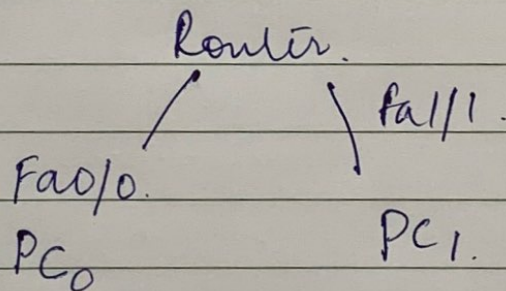 Router.
Fa1/1.
Fa0/0.
PC0
PC1.